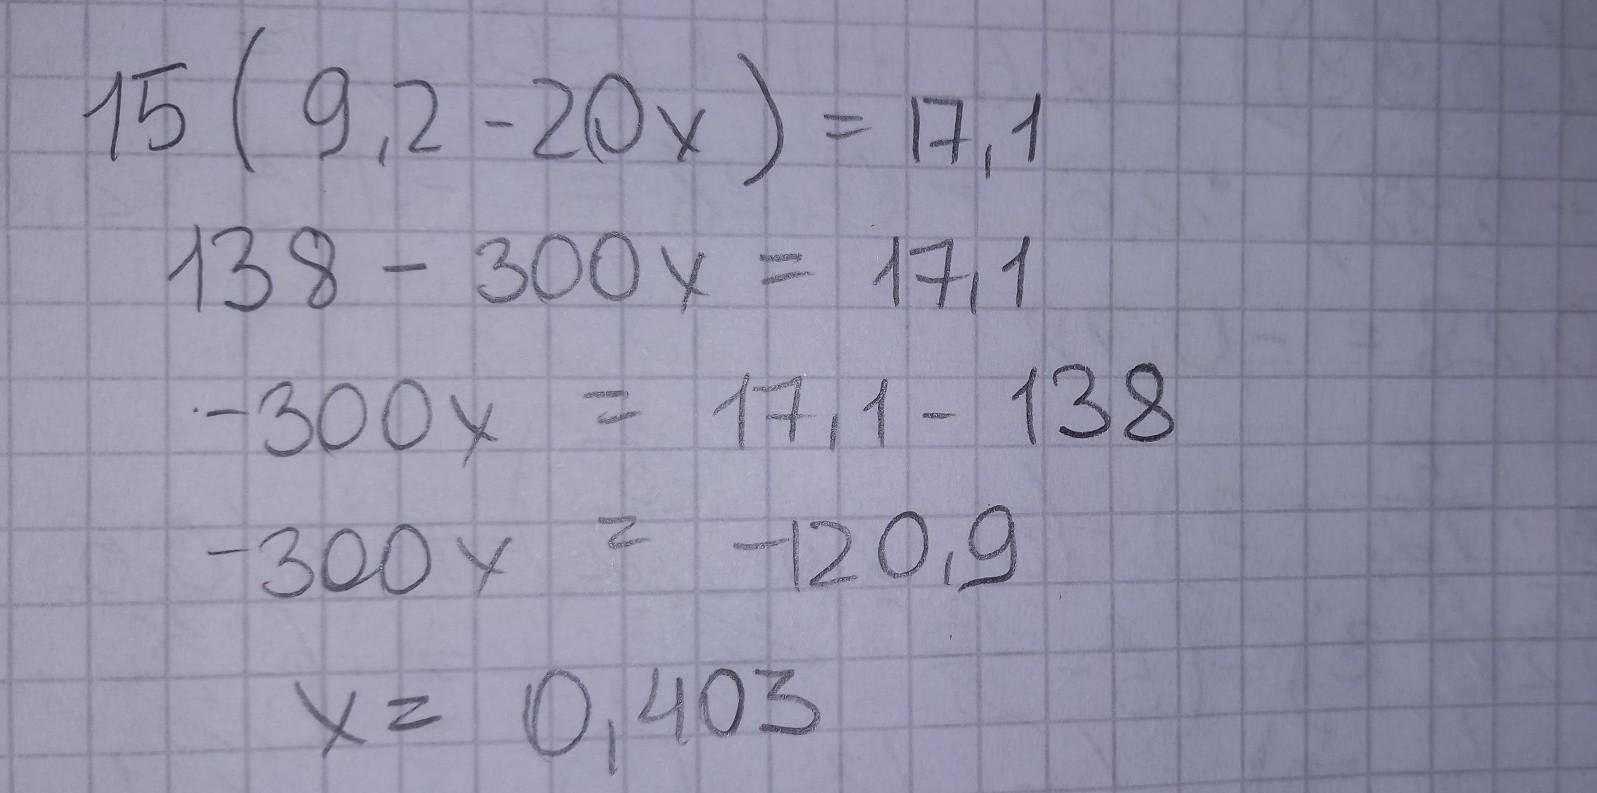 15(9,2-20x)=17,1
138-300x=17,1
-300x=17,1-138
-300x=-120,9
x=0,403